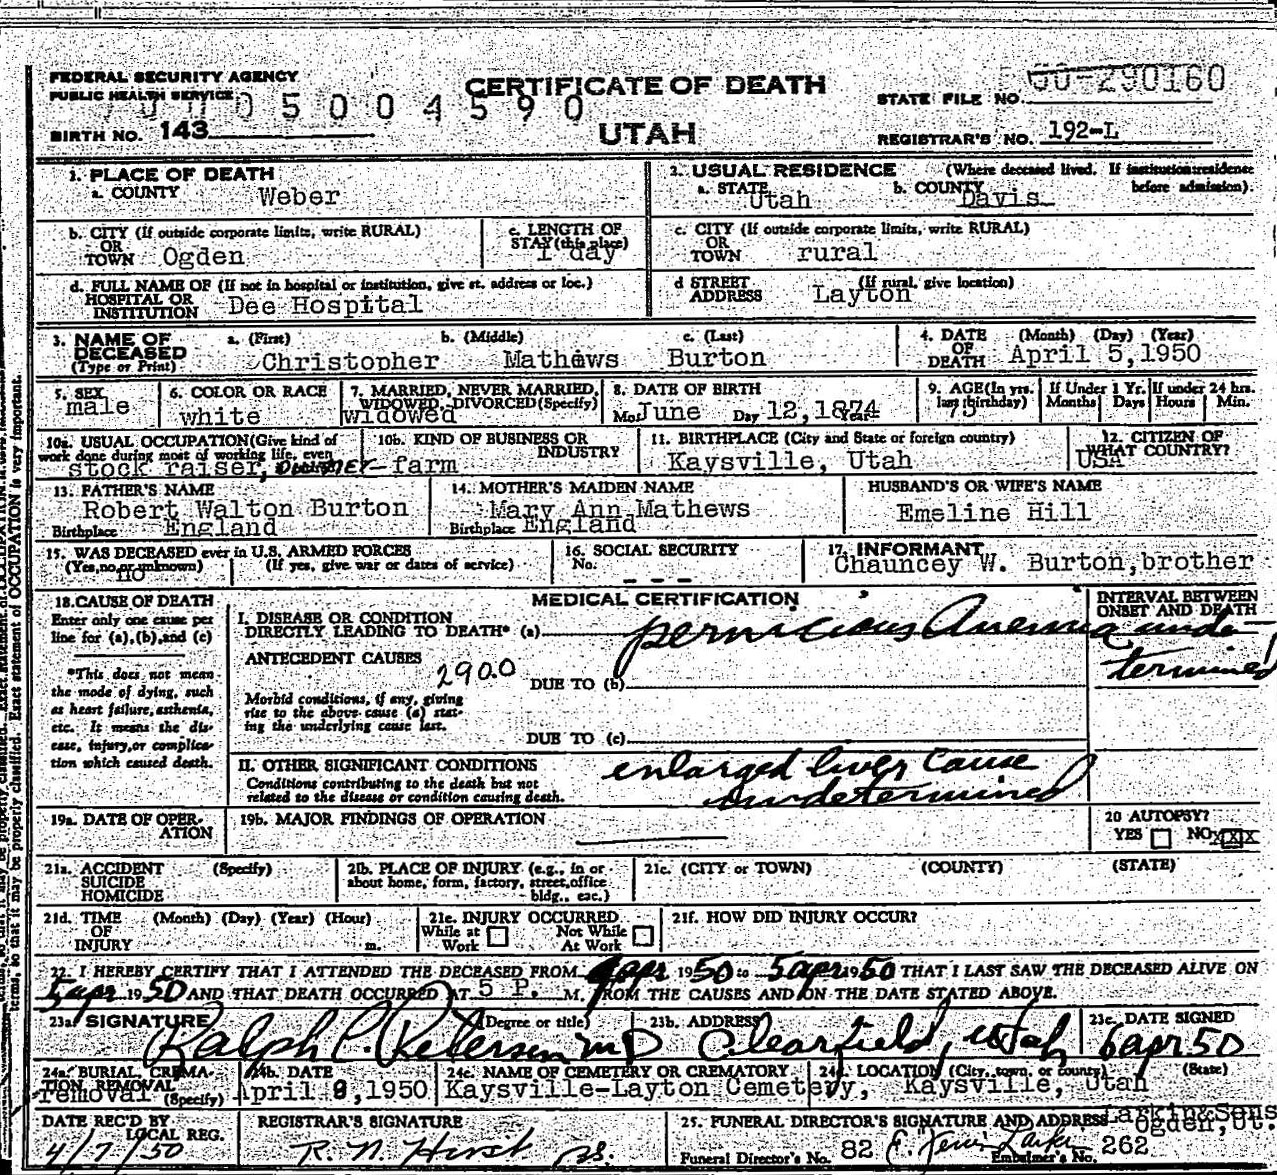 FEDERAL SECURITY AGENCY
PUBLIC HEALTH SERVICE
5004590
BIRTH NO. 143
CERTIFICATE OF DEATH
UTAH
STATE FILE NO. 50-290160
REGISTRAR'S NO. 192-L
1. PLACE OF DEATH
a. COUNTY Weber
2. USUAL RESIDENCE (Where deceased lived. If institution: residence before admission).
a. STATE Utah b. COUNTY Davis
b. CITY (If outside corporate limits, write RURAL) OR TOWN Ogden
c. LENGTH OF STAY (this place) 1 day
c. CITY (If outside corporate limits, write RURAL) OR TOWN rural
d. FULL NAME OF (If not in hospital or institution, give st. address or loc.) HOSPITAL OR INSTITUTION Dee Hospital
d STREET ADDRESS (If rural, give location) Layton
3. NAME OF DECEASED (Type or Print) a. (First) b. (Middle) c. (Last)
Christopher Mathews Burton
4. DATE OF DEATH (Month) (Day) (Year) April 5, 1950
5. SEX male
6. COLOR OR RACE white
7. MARRIED, NEVER MARRIED, WIDOWED, DIVORCED (Specify) widowed
8. DATE OF BIRTH Mo. June Day 12, 1874 Year
9. AGE (In yrs. last birthday) 75
If Under 1 Yr. Months Days
If under 24 hrs. Hours Min.
10a. USUAL OCCUPATION (Give kind of work done during most of working life, even stock raiser,
10b. KIND OF BUSINESS OR INDUSTRY farm
11. BIRTHPLACE (City and State or foreign country) Kaysville, Utah
12. CITIZEN OF WHAT COUNTRY? USA
13. FATHER'S NAME Robert Walton Burton
Birthplace England
14. MOTHER'S MAIDEN NAME Mary Ann Mathews
Birthplace England
HUSBAND'S OR WIFE'S NAME
Emeline Hill
15. WAS DECEASED ever in U.S. ARMED FORCES
(Yes, no, or unknown) no (If yes, give war or dates of service)
16. SOCIAL SECURITY No. - - -
17. INFORMANT
Chauncey W. Burton, brother
18. CAUSE OF DEATH
Enter only one cause per line for (a), (b), and (c)
*This does not mean the mode of dying, such as heart failure, asthenia, etc. It means the disease, injury, or complication which caused death.
MEDICAL CERTIFICATION
I. DISEASE OR CONDITION DIRECTLY LEADING TO DEATH* (a) pernicious Anemia
INTERVAL BETWEEN ONSET AND DEATH
undetermined
ANTECEDENT CAUSES 290.0
Morbid conditions, if any, giving rise to the above cause (a) stating the underlying cause last.
DUE TO (b)
DUE TO (c)
II. OTHER SIGNIFICANT CONDITIONS
Conditions contributing to the death but not related to the disease or condition causing death.
enlarged liver cause
undetermined
19a. DATE OF OPERATION
19b. MAJOR FINDINGS OF OPERATION
20 AUTOPSY? YES NO XXX
21a. ACCIDENT SUICIDE HOMICIDE (Specify)
21b. PLACE OF INJURY (e.g., in or about home, form, factory, street, office bldg., etc.)
21c. (CITY OR TOWN) (COUNTY) (STATE)
21d. TIME OF INJURY (Month) (Day) (Year) (Hour) m.
21e. INJURY OCCURRED While at Work Not While At Work
21f. HOW DID INJURY OCCUR?
22. I HEREBY CERTIFY THAT I ATTENDED THE DECEASED FROM apr 1950 to 5 apr 1950 THAT I LAST SAW THE DECEASED ALIVE ON
5 apr 1950 AND THAT DEATH OCCURRED AT 5 P. M. FROM THE CAUSES AND ON THE DATE STATED ABOVE.
23a SIGNATURE (Degree or title) Ralph C. Petersen MD
23b. ADDRESS Clearfield, Utah
23c. DATE SIGNED 6 apr 50
24a. BURIAL, CREMATION, REMOVAL (Specify) removal
24b. DATE April 8, 1950
24c. NAME OF CEMETERY OR CREMATORY Kaysville-Layton Cemetery,
24d. LOCATION (City, town, or county) (State) Kaysville, Utah
DATE REC'D BY LOCAL REG.
4/7/50
REGISTRAR'S SIGNATURE
R. N. Hirst
25. FUNERAL DIRECTOR'S SIGNATURE AND ADDRESS Larkin & Sons
Ogden, Ut.
Funeral Director's No. 82 Embalmer's No. 262